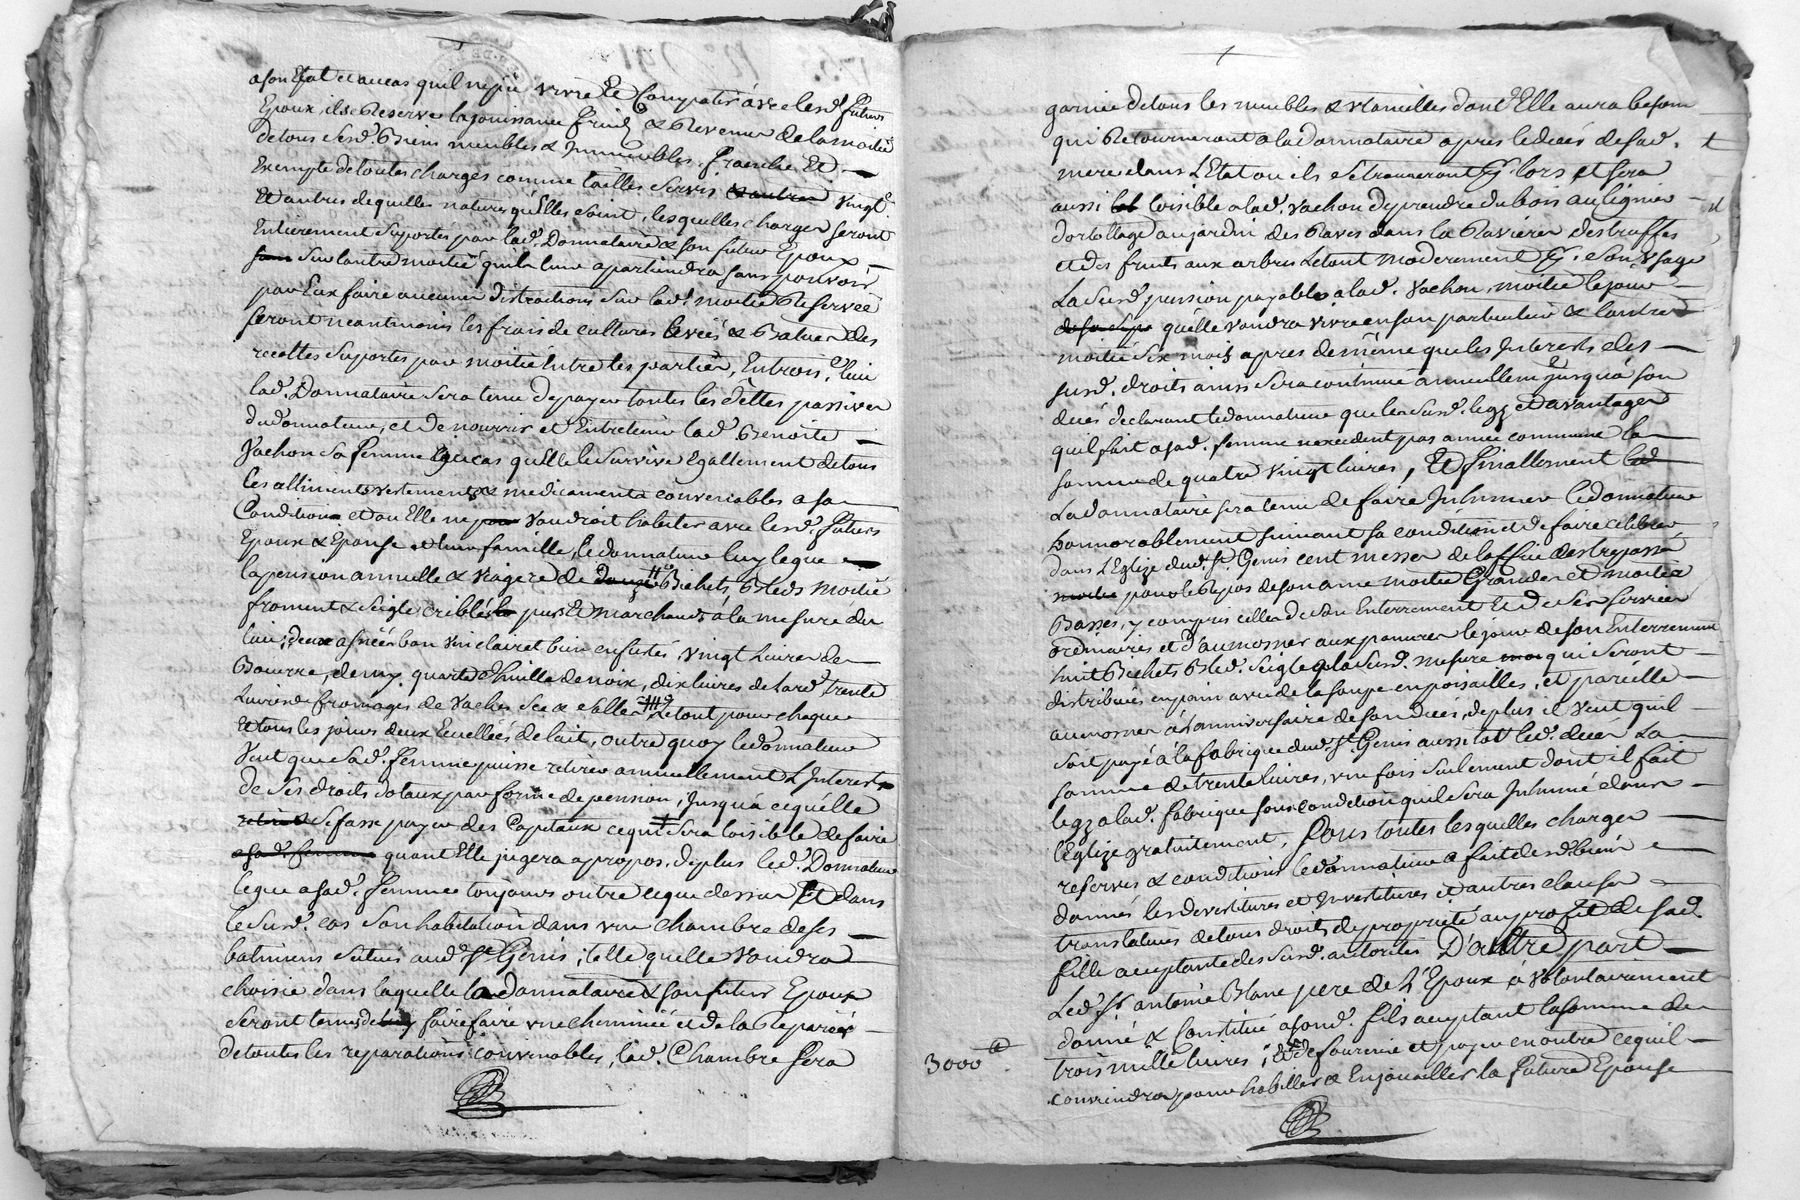 a son Etat et au cas quil ne put vivre Et Compatir avec lesd. futurs
Epoux, il se Reserve la jouissance fruits & Revenus de la moitié
de tous sesd. Biens meubles & Immeubles, franche Et
Exempte de toutes charges comme tailles servis & autres vingt.
Et autres de quelles natures qu'Elles soint, lesquelles charges seront
Entierement suportés par lad. Donnataire & son futur Epoux
sur lautre moitié qui leur apartiendra sans pouvoir
par Eux faire aucunes distractions sur lad. moitié Reservée
seront neantmoins les frais de cultures levées & Batues des
recoltes suportés par moitié Entre les parties, Entrons, luy
lad. Donnataire sera tenue de payer toutes les dettes passives
du donnateur, et de nourrir et Entretenir lad. Benoite
Vachon sa femme au cas quElle le survive Egallement de tous
les alliments vestements & medicaments convenables a sa
Condition et ou Elle ne voudroit habiter avec lesd. futurs
Epoux & Epouse et leur famille, le donnateur luy legue
la pension annuelle & viagere de douze Bichets, Bleds moitié
froment & seigle criblés purs Et marchands à la mesure du
lieu; deux asnées bon vin clairet bien enfutés, vingt Livres de
Beurre, demy quarte d'huille de noix, dix livres de lard, trente
Livres de fromages de vaches secs & sallés, Le tout pour chaque
Et tous les jours deux Ecuellées de lait, outre quoy le donnateur
Veut que sad. femme puisse retirer annuellement L'Interest
de ses droits dotaux par forme de pension, Jusqu'à ce qu'elle
se fasse payer des Capitaux ce qui sera loisible de faire
a sad. femme quant Elle jugera apropos, de plus led. Donnateur
legue a sad. femme toujours outre ce que dessus Et dans
le susd. cas son habitation dans une chambre de ses
batimens situés aud. St Genis; telle quelle voudra
choisir dans laquelle la donnataire & son futur Epoux
seront tenus de faire faire une cheminée et de la Reparer
de toutes les reparations convenables, lad. Chambre sera
garnie de tous les meubles & Utancilles dont Elle aura besoin
qui Retourneront a la donnataire apres le deces de sad.
mere dans L'Etat ou ils se trouveront pr. lors et sera
aussi loisible a lad. Vachon de prendre du bois au lignier
d'ortollage au jardin des Raves dans la Raviere des truffes
et des fruits aux arbres Le tout moderement pr. son Usage
La susd. pension payable a lad. Vachon, moitié le jour
quelle voudra vivre en son particulier & l'autre
moitié six mois apres de même que les Interests des
susd. droits ainsi sera continué annuellemt. jusqu'a son
deces declarant le donnateur que les susd. legz et avantages
quil fait a sad. femme nexcedent pas année commune la
somme de quatre vingt livres, Et finallement
La donnataire sera tenue de faire Inhumer le donnateur
honnorablement suivant sa condition et de faire celebrer
dans L'Eglize dud. St Genis cent messes de l'office des trepassés
pour le Repos de son ame moitié Grandes et moitié
Basses, y compris celles de son Enterrement Et de ses services
ordinaires et d'aumosner aux pauvres le jour de son Enterrement
huit Bichets Bled seigle a la susd. mesure qui seront
distribués en pain avec de la soupe en poisailles, et pareille
aumosne à l'anniversaire de son deces, de plus il veut quil
soit payé à la fabrique dud. St Genis aussitot led. deces La
somme de trente livres, une fois seulement dont il fait
legz a lad. fabrique sous condition quil sera Inhumé dans
l'Eglize gratuitement, Sous toutes lesquelles charges
reserves & conditions le donnateur a fait desd. biens
donnés les devestitures et Investitures et autres clauses
translatives de tous droits de propriété au profit de sad.
fille acceptante des susd. autorités D'autre part
Led. Sr. antoine Blanc pere de L'Epoux à volontairement
donné & Constitué a sond. fils acceptant la somme de
3000 tt
trois mille livres; Et de fournir et payer en outre ce quil
conviendra pour habiller & Enjoailler la future Epouse